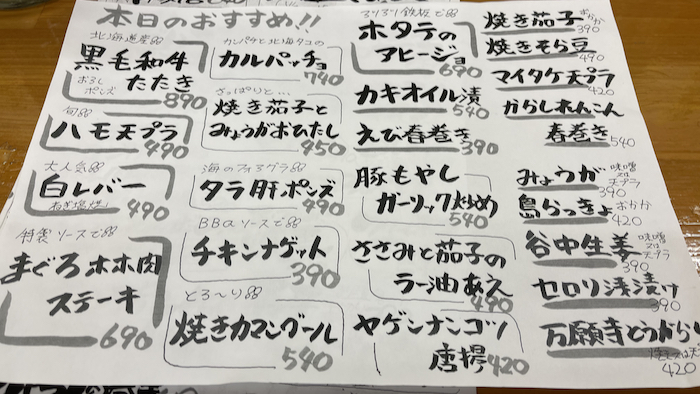 本日のおすすめ!!
北海道産
黒毛和牛
たたき
おろし
ポンズ
890
旬
ハモ天プラ
490
大人気
白レバー
ねぎ塩焼
490
特製ソースで
まぐろホホ肉
ステーキ
690
カンパチと北海タコの
カルパッチョ
790
さっぱりと…
焼き茄子と
みょうがおひたし
450
海のフォアグラ
タラ肝ポンズ
490
BBQソースで
チキンナゲット
390
とろ〜り
焼きカマンベール
540
アツアツ鉄板で
ホタテの
アヒージョ
690
カキオイル漬
540
えび春巻き
390
豚もやし
ガーリック炒め
540
ささみと茄子の
ラー油あえ
490
ヤゲンナンコツ
唐揚420
焼き茄子
おかか
390
焼きそら豆
490
マイタケ天プラ
420
からしれんこん
春巻き
540
みょうが
味噌
又は
天プラ
390
島らっきょ
おかか
420
谷中生姜
味噌
又は
天プラ
390
セロリ浅漬け
390
万願寺とうがらし
420